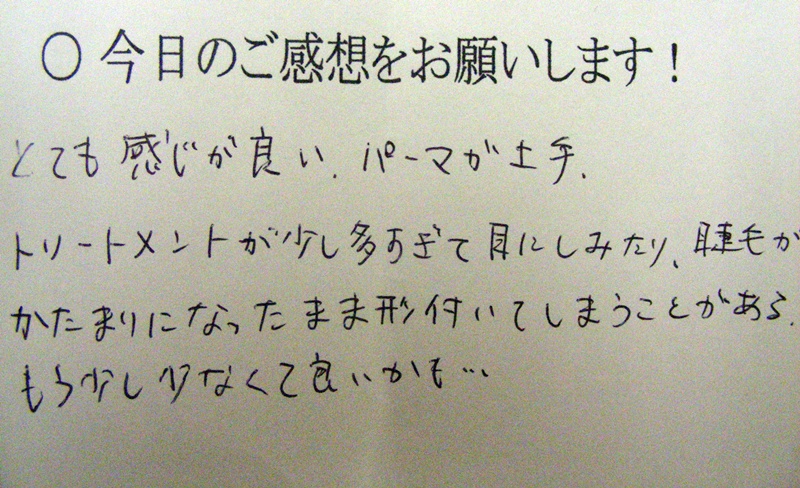 ○ 今日のご感想をお願いします！
とても感じが良い、パーマが上手、
トリートメントが少し多すぎて目にしみたり、睫毛が
かたまりになったまま形付いてしまうことがある、
もう少し少なくて良いかも…